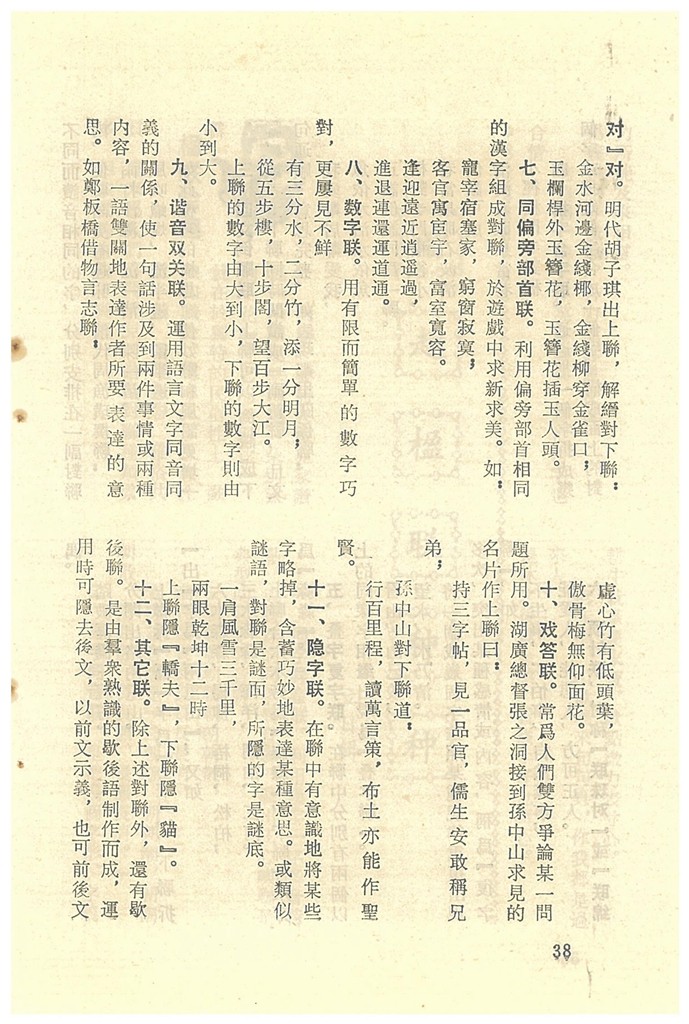 对』对。明代胡子琪出上聯，解縉對下聯：
金水河邊金綫栁，金綫柳穿金雀口；
玉欄桿外玉簪花，玉簪花插玉人頭。
七、同偏旁部首联。利用偏旁部首相同
的漢字組成對聯，於遊戲中求新求美。如：
寵宰宿塞家，窮窗寂寞；
客官寓宦宇，富室寬容。
逢迎遠近逍遥過，
進退連還運道通。
八、数字联。用有限而簡單的數字巧
對，更屢見不鮮
有三分水，二分竹，添一分明月；
從五步樓，十步閣，望百步大江。
上聯的數字由大到小，下聯的數字則由
小到大。
九、谐音双关联。運用語言文字同音同
義的關係，使一句話涉及到兩件事情或兩種
内容，一語雙關地表達作者所要表達的意
思。如鄭板橋借物言志聯：
虚心竹有低頭葉，
傲骨梅無仰面花。
十、戏答联。常爲人們雙方爭論某一問
題所用。湖廣總督張之洞接到孫中山求見的
名片作上聯曰：
持三字帖，見一品官，儒生安敢稱兄
弟；
孫中山對下聯道：
行百里程，讀萬言策，布土亦能作聖
賢。
十一、隐字联。在聯中有意識地將某些
字略掉，含蓄巧妙地表達某種意思。或類似
謎語，對聯是謎面，所隱的字是謎底。
一肩風雪三千里，
兩眼乾坤十二時
上聯隱『轎夫』，下聯隱『貓』。
十二、其它联。除上述對聯外，還有歇
後聯。是由羣衆熟識的歇後語制作而成，運
用時可隱去後文，以前文示義，也可前後文
38